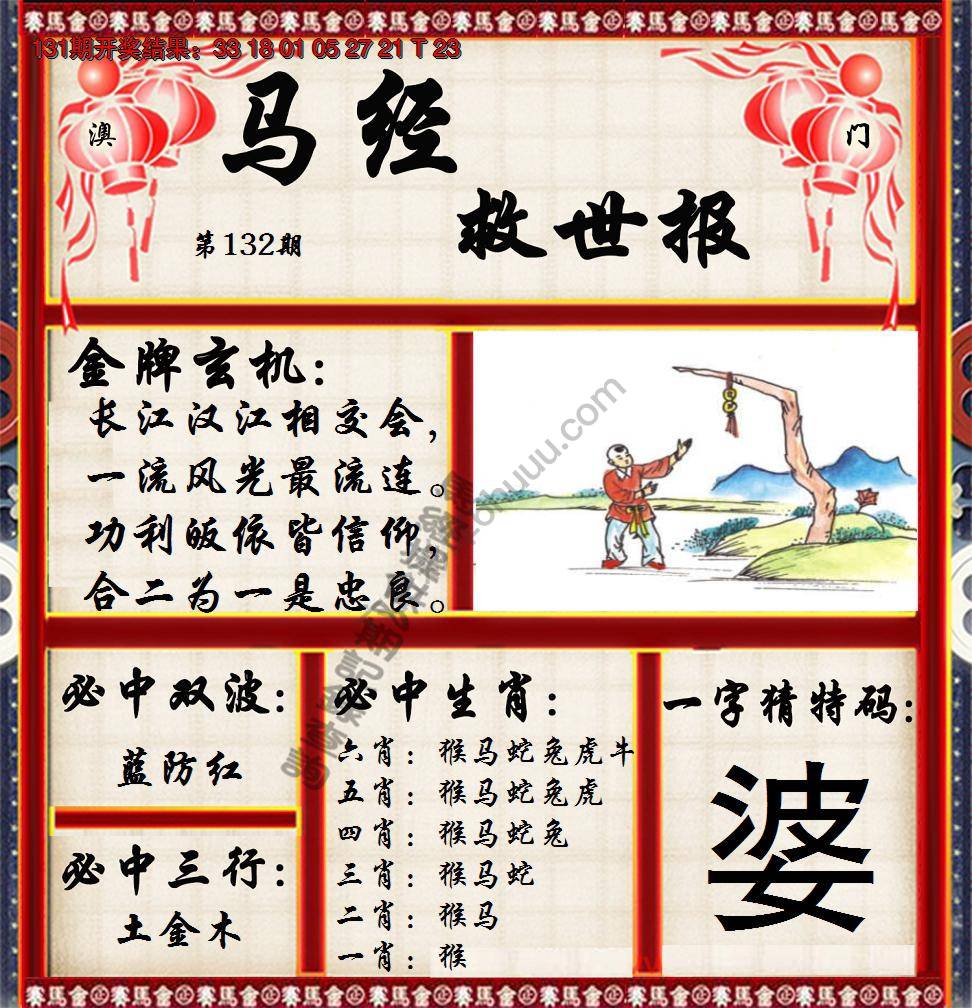 赛马会
131期开奖结果：33 18 01 05 27 21 T 23
澳
门
马经
救世报
第132期
金牌玄机：
长江汉江相交会，
一流风光最流连。
功利皈依皆信仰，
合二为一是忠良。
必中双波：
蓝防红
必中三行：
土金木
必中生肖：
六肖：猴马蛇兔虎牛
五肖：猴马蛇兔虎
四肖：猴马蛇兔
三肖：猴马蛇
二肖：猴马
一肖：猴
一字猜特码：
婆